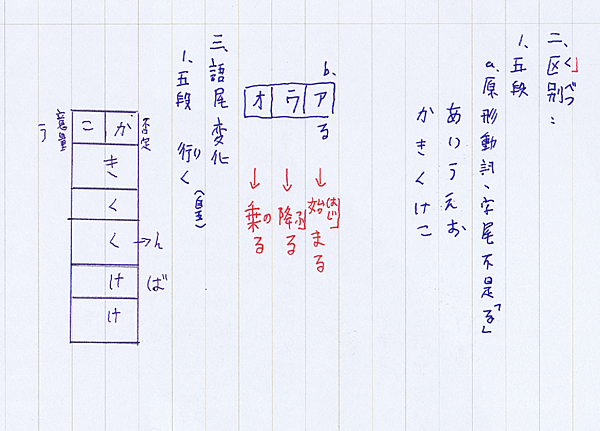 二、区別：
くべつ
1、五段
a、原形動詞、字尾不是「る」
あいうえお
かきくけこ
b、
ア ウ オ
る
↓ ↓ ↓
始まる
はじ
降る
ふ
乗る
の
三、語尾変化
1、五段 行く
い
否定
か こ
意量
う
き
く
く→ん
け ば
け